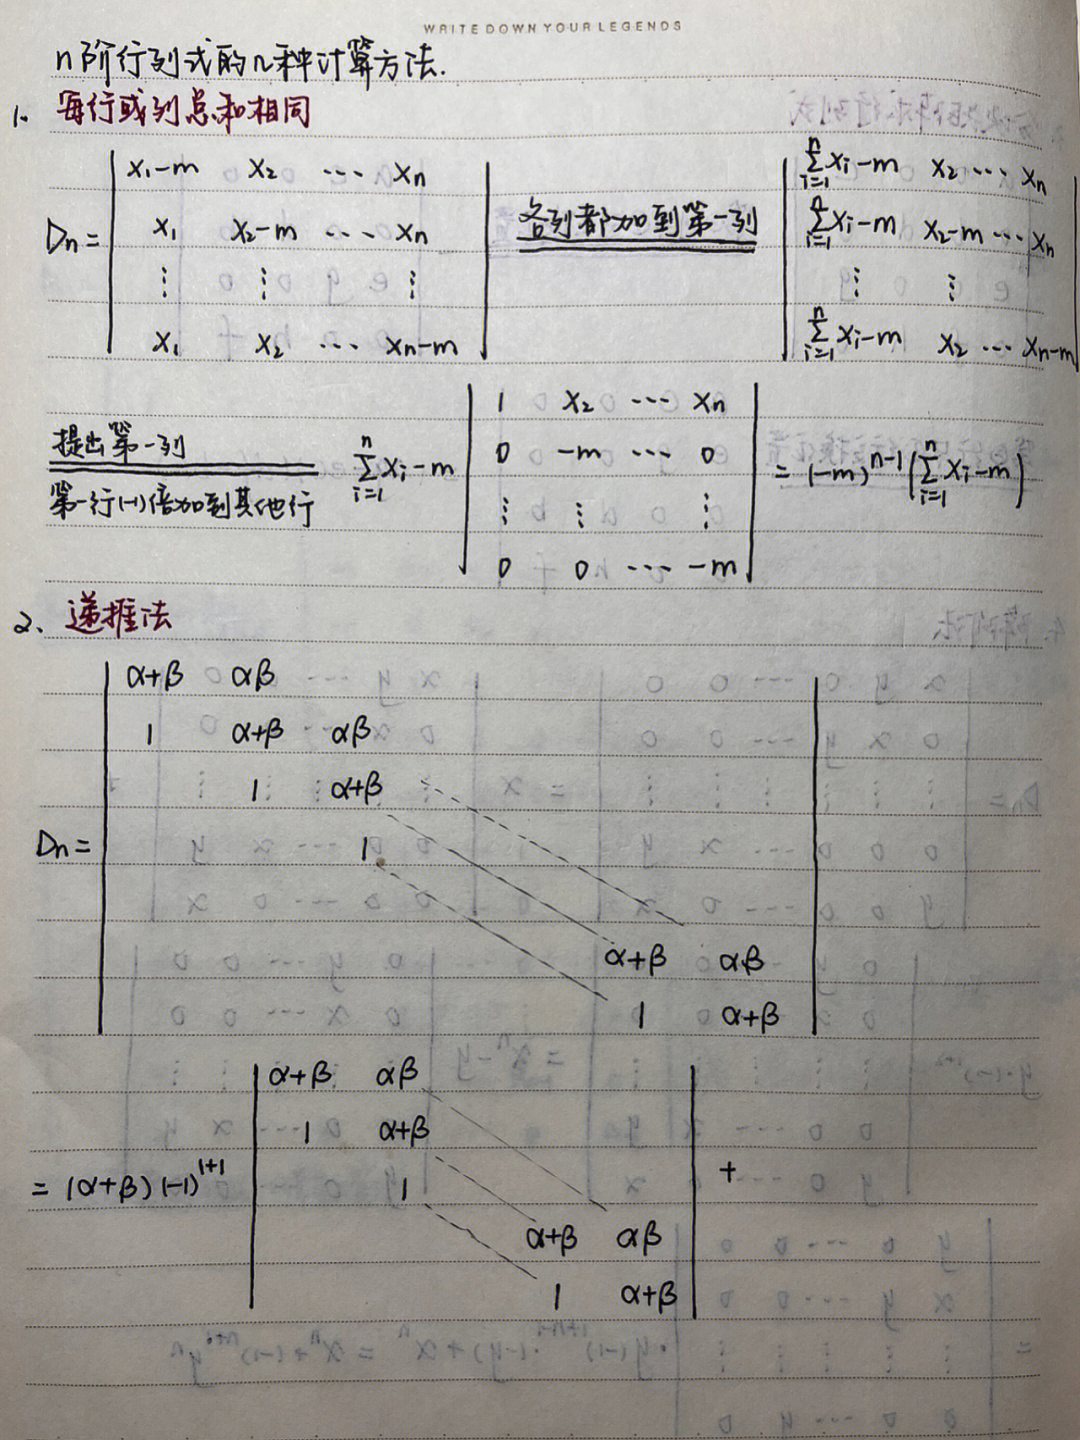 WRITE DOWN YOUR LEGENDS
n阶行列式的n种计算方法.
1. 每行或列总和相同
x₁-m x₂ ··· xₙ
Dₙ= x₁ x₂-m ··· xₙ
⋮ ⋮ ⋮
x₁ x₂ ··· xₙ-m
各列都加到第一列
∑ⁿᵢ₌₁xᵢ-m x₂ ··· xₙ
∑ⁿᵢ₌₁xᵢ-m x₂-m ··· xₙ
⋮ ⋮
∑ⁿᵢ₌₁xᵢ-m x₂ ··· xₙ-m
提出第一列
第一行(-1)倍加到其他行
∑ⁿᵢ₌₁xᵢ-m
1 x₂ ··· xₙ
0 -m ··· 0
⋮ ⋮ ⋮
0 0 ··· -m
= (-m)ⁿ⁻¹(∑ⁿᵢ₌₁xᵢ-m)
2、递推法
α+β αβ
1 α+β αβ
1 α+β
Dₙ= 1
α+β αβ
1 α+β
α+β αβ
1 α+β
= (α+β)(-1)¹⁺¹ 1 +
α+β αβ
1 α+β